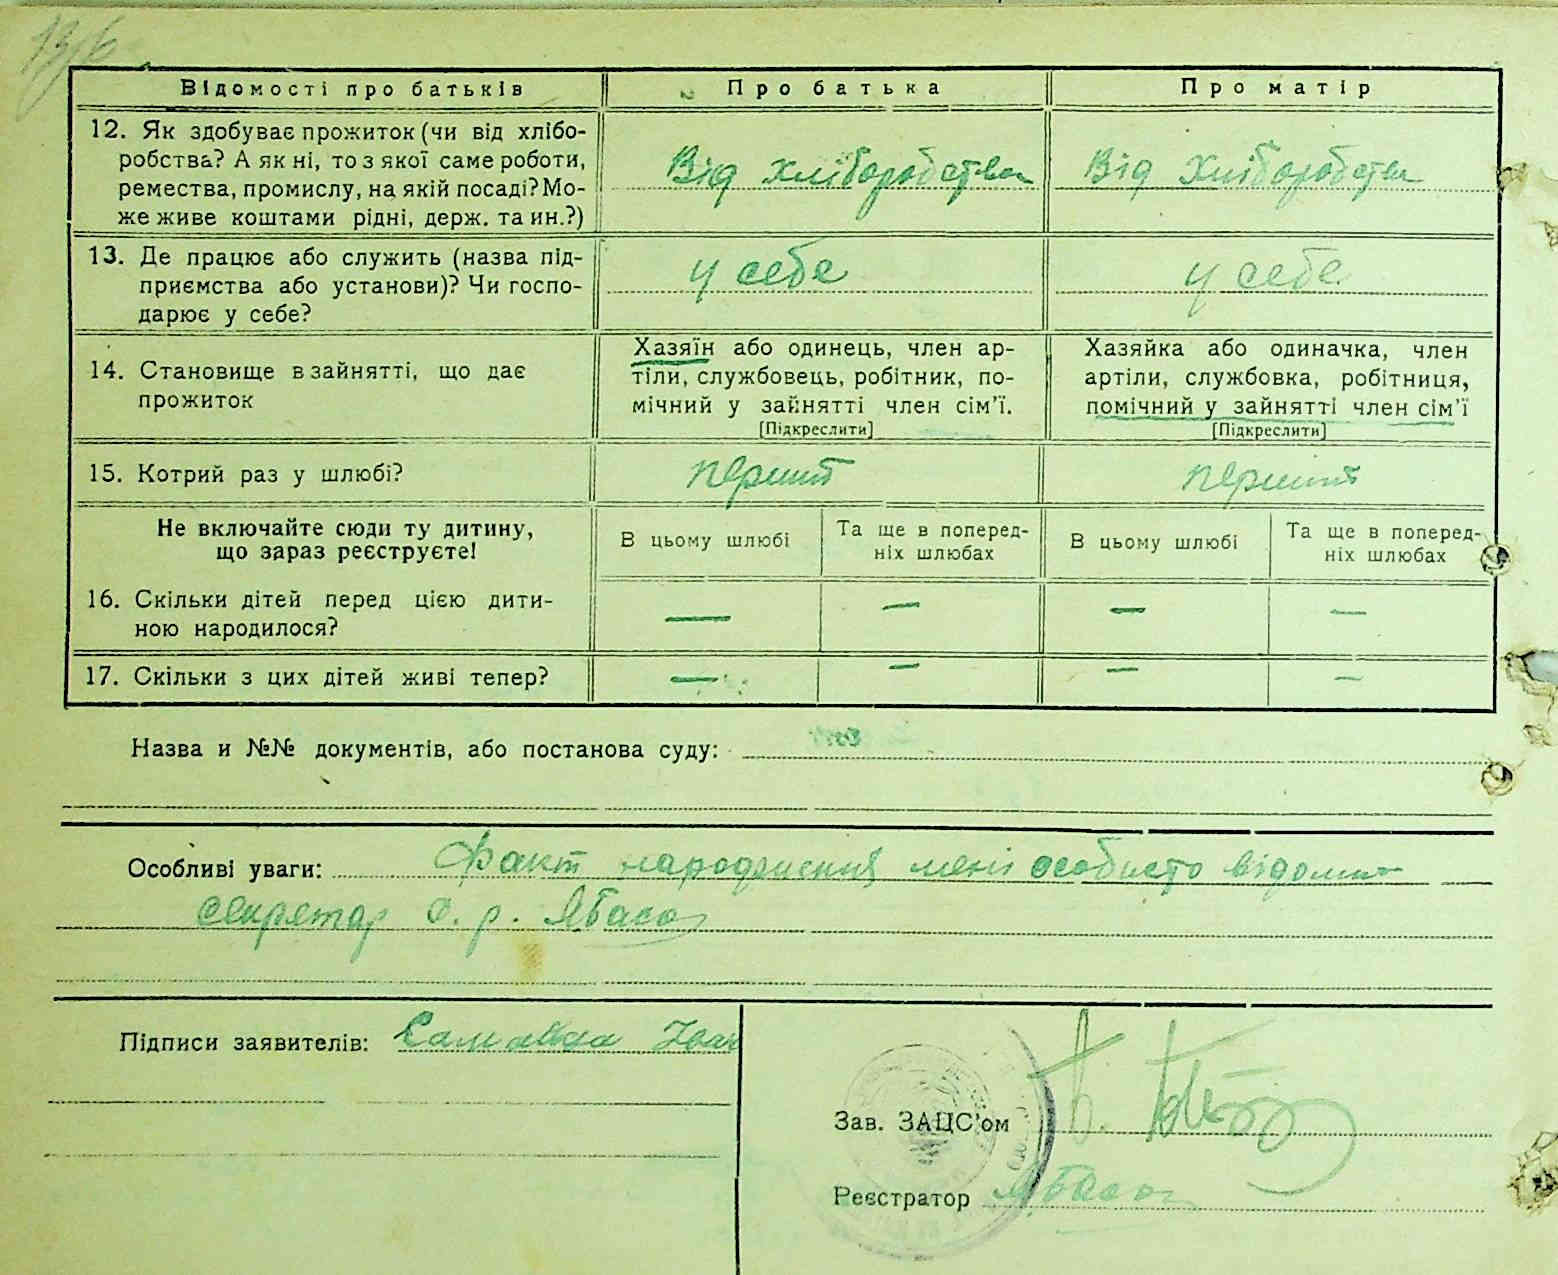 Відомості про батьків
Про батька
Про матір
12. Як здобуває прожиток (чи від хлібо-
робства? А як ні, то з якої саме роботи,
ремества, промислу, на якій посаді? Мо-
же живе коштами рідні, держ. та ин.?)
Від хліборобства
Від хліборобства
13. Де працює або служить (назва під-
приємства або установи)? Чи госпо-
дарює у себе?
у себе
у себе
14. Становище в зайнятті, що дає
прожиток
Хазяїн або одинець, член ар-
тіли, службовець, робітник, по-
мічний у зайнятті член сім'ї.
[Підкреслити]
Хазяйка або одиначка, член
артіли, службовка, робітниця,
помічний у зайнятті член сім'ї
[Підкреслити]
15. Котрий раз у шлюбі?
перший
перший
Не включайте сюди ту дитину,
що зараз реєструєте!
В цьому шлюбі
Та ще в поперед-
ніх шлюбах
В цьому шлюбі
Та ще в поперед-
ніх шлюбах
16. Скільки дітей перед цією дити-
ною народилося?
— — — —
17. Скільки з цих дітей живі тепер?
— — — —
Назва и №№ документів, або постанова суду:
Особливі уваги: Факт народження мені особисто відомий
секретар с. р.
Підписи заявителів: Іван
Зав. ЗАЦС'ом
Реєстратор